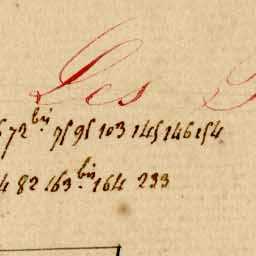 Les
72 bis 75 95 103 145 146 154
4 82 163 bis 164 233